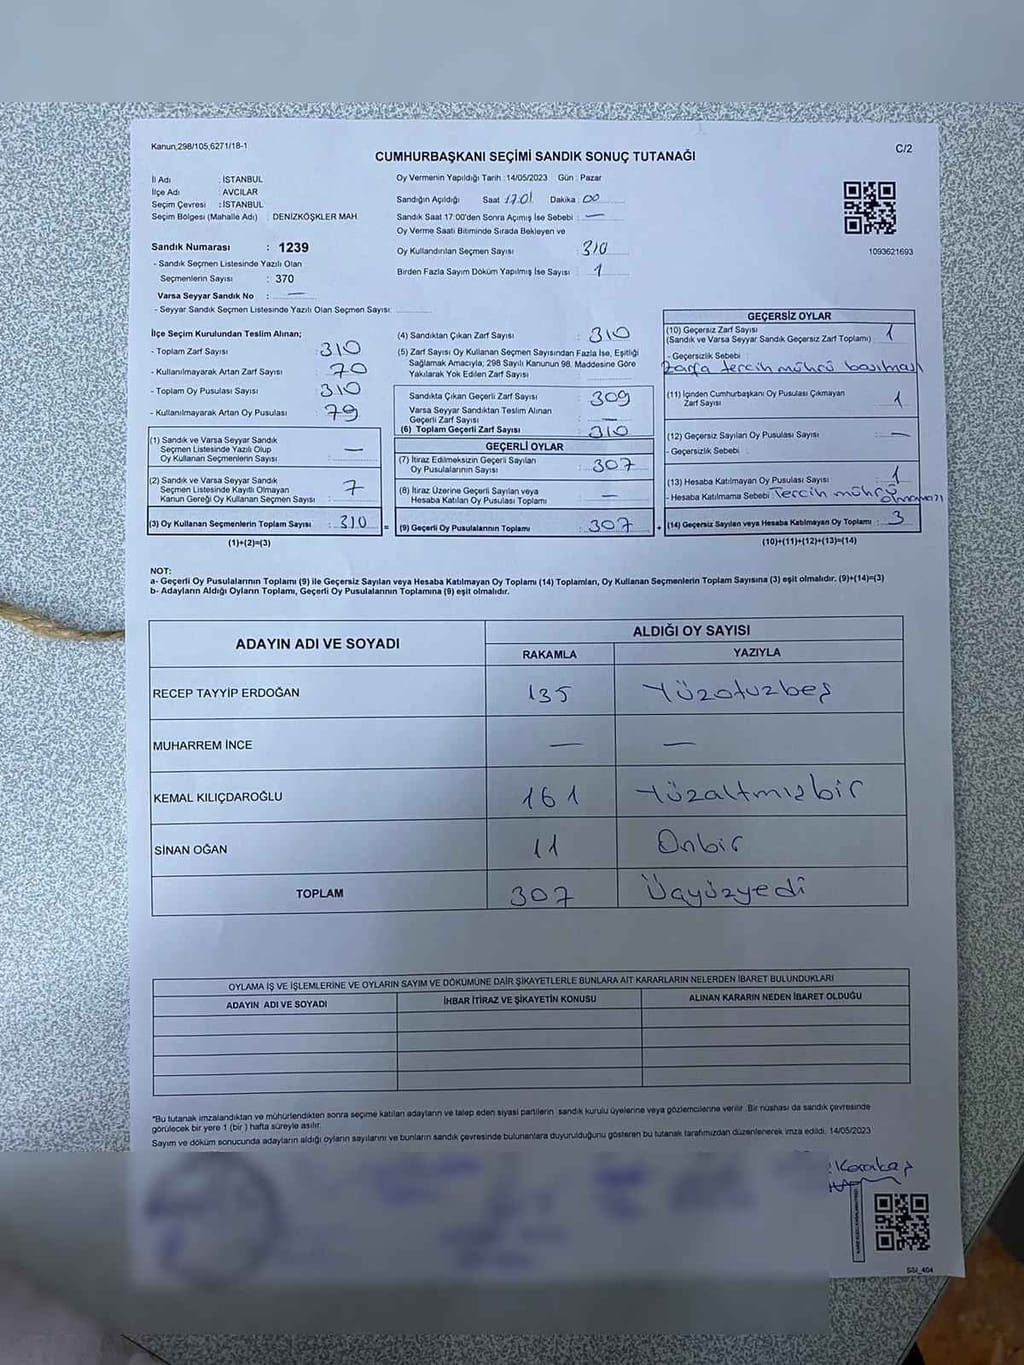 Kanun,298/105,6271/18-1
C/2
CUMHURBAŞKANI SEÇİMİ SANDIK SONUÇ TUTANAĞI
İl Adı : İSTANBUL
İlçe Adı : AVCILAR
Seçim Çevresi : İSTANBUL
Seçim Bölgesi (Mahalle Adı) : DENİZKÖŞKLER MAH.
Sandık Numarası : 1239
- Sandık Seçmen Listesinde Yazılı Olan
Seçmenlerin Sayısı : 370
Varsa Seyyar Sandık No : —
- Seyyar Sandık Seçmen Listesinde Yazılı Olan Seçmen Sayısı:
Oy Vermenin Yapıldığı Tarih : 14/05/2023 Gün : Pazar
Sandığın Açıldığı Saat 17:01 Dakika : 00
Sandık Saat 17:00'den Sonra Açımış İse Sebebi : —
Oy Verme Saati Bitiminde Sırada Bekleyen ve
Oy Kullandırılan Seçmen Sayısı : 310
Birden Fazla Sayım Döküm Yapılmış İse Sayısı : 1
1093621693
İlçe Seçim Kurulundan Teslim Alınan;
- Toplam Zarf Sayısı : 310
- Kullanılmayarak Artan Zarf Sayısı : 70
- Toplam Oy Pusulası Sayısı : 310
- Kullanılmayarak Artan Oy Pusulası : 79
(1) Sandık ve Varsa Seyyar Sandık
Seçmen Listesinde Yazılı Olup
Oy Kullanan Seçmenlerin Sayısı : —
(2) Sandık ve Varsa Seyyar Sandık
Seçmen Listesinde Kayıtlı Olmayan
Kanun Gereği Oy Kullanan Seçmen Sayısı : 7
(3) Oy Kullanan Seçmenlerin Toplam Sayısı : 310 =
(1)+(2)=(3)
(4) Sandıktan Çıkan Zarf Sayısı : 310
(5) Zarf Sayısı Oy Kullanan Seçmen Sayısından Fazla İse, Eşitliği
Sağlamak Amacıyla, 298 Sayılı Kanunun 98. Maddesine Göre
Yakılarak Yok Edilen Zarf Sayısı
Sandıkta Çıkan Geçerli Zarf Sayısı : 309
Varsa Seyyar Sandıktan Teslim Alınan
Geçerli Zarf Sayısı : —
(6) Toplam Geçerli Zarf Sayısı : 310
GEÇERLİ OYLAR
(7) İtiraz Edilmeksizin Geçerli Sayılan
Oy Pusulalarının Sayısı : 307
(8) İtiraz Üzerine Geçerli Sayılan veya
Hesaba Katılan Oy Pusulası Toplamı : —
(9) Geçerli Oy Pusulalarının Toplamı : 307 +
GEÇERSİZ OYLAR
(10) Geçersiz Zarf Sayısı
(Sandık ve Varsa Seyyar Sandık Geçersiz Zarf Toplamı) : 1
- Geçersizlik Sebebi :
Zarfa tercih mührü basılması
(11) İçinden Cumhurbaşkanı Oy Pusulası Çıkmayan
Zarf Sayısı : 1
(12) Geçersiz Sayılan Oy Pusulası Sayısı : —
- Geçersizlik Sebebi :
(13) Hesaba Katılmayan Oy Pusulası Sayısı : 1
- Hesaba Katılmama Sebebi : Tercih mührü
olmaması
(14) Geçersiz Sayılan veya Hesaba Katılmayan Oy Toplamı : 3
(10)+(11)+(12)+(13)=(14)
NOT:
a- Geçerli Oy Pusulalarının Toplamı (9) ile Geçersiz Sayılan veya Hesaba Katılmayan Oy Toplamı (14) Toplamları, Oy Kullanan Seçmenlerin Toplam Sayısına (3) eşit olmalıdır. (9)+(14)=(3)
b- Adayların Aldığı Oyların Toplamı, Geçerli Oy Pusulalarının Toplamına (9) eşit olmalıdır.
ADAYIN ADI VE SOYADI
ALDIĞI OY SAYISI
RAKAMLA YAZIYLA
RECEP TAYYİP ERDOĞAN 135 Yüzotuzbeş
MUHARREM İNCE — —
KEMAL KILIÇDAROĞLU 161 Yüzaltmışbir
SİNAN OĞAN 11 Onbir
TOPLAM 307 Üçyüzyedi
OYLAMA İŞ VE İŞLEMLERİNE VE OYLARIN SAYIM VE DÖKÜMÜNE DAİR ŞİKAYETLERLE BUNLARA AİT KARARLARIN NELERDEN İBARET BULUNDUKLARI
ADAYIN ADI VE SOYADI İHBAR İTİRAZ VE ŞİKAYETİN KONUSU ALINAN KARARIN NEDEN İBARET OLDUĞU
*Bu tutanak imzalandıktan ve mühürlendikten sonra seçime katılan adayların ve talep eden siyasi partilerin sandık kurulu üyelerine veya gözlemcilerine verilir. Bir nüshası da sandık çevresinde
görülecek bir yere 1 (bir) hafta süreyle asılır.
Sayım ve döküm sonucunda adayların aldığı oyların sayılarını ve bunların sandık çevresinde bulunanlara duyurulduğunu gösteren bu tutanak tarafımızdan düzenlenerek imza edildi. 14/05/2023
Karakaş
SSI_404